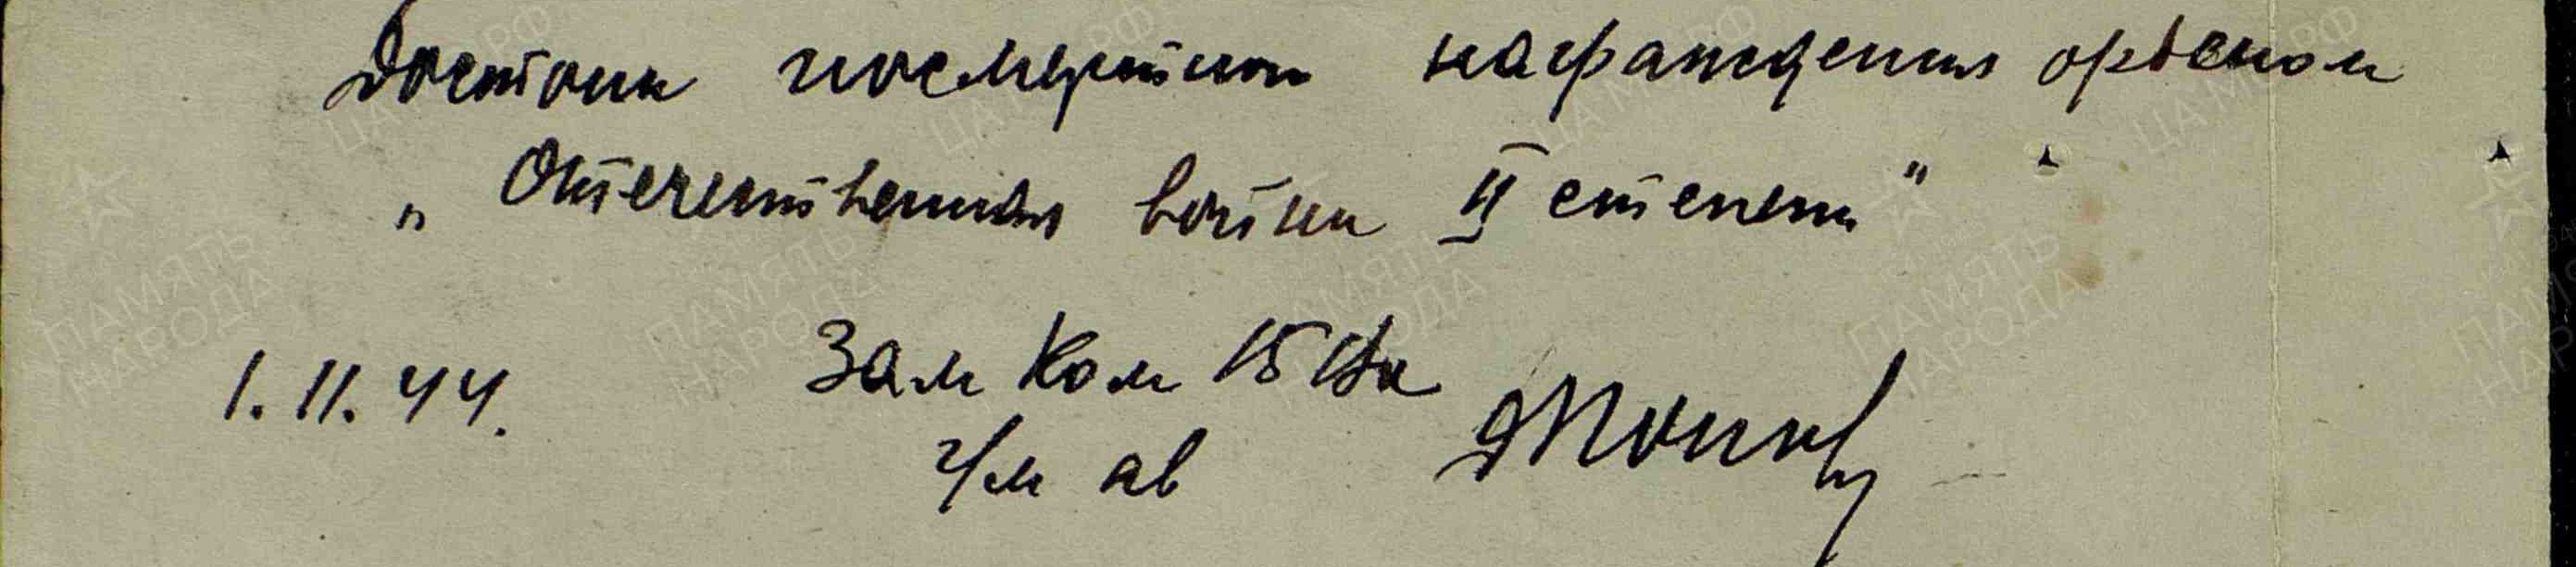 Достоин посмертного награждения орденом
„Отечественная война II степени"
1.11.44. Зам Ком 15 ВА
г/м ав
ПАМЯТЬ НАРОДА
ЦАМО РФ